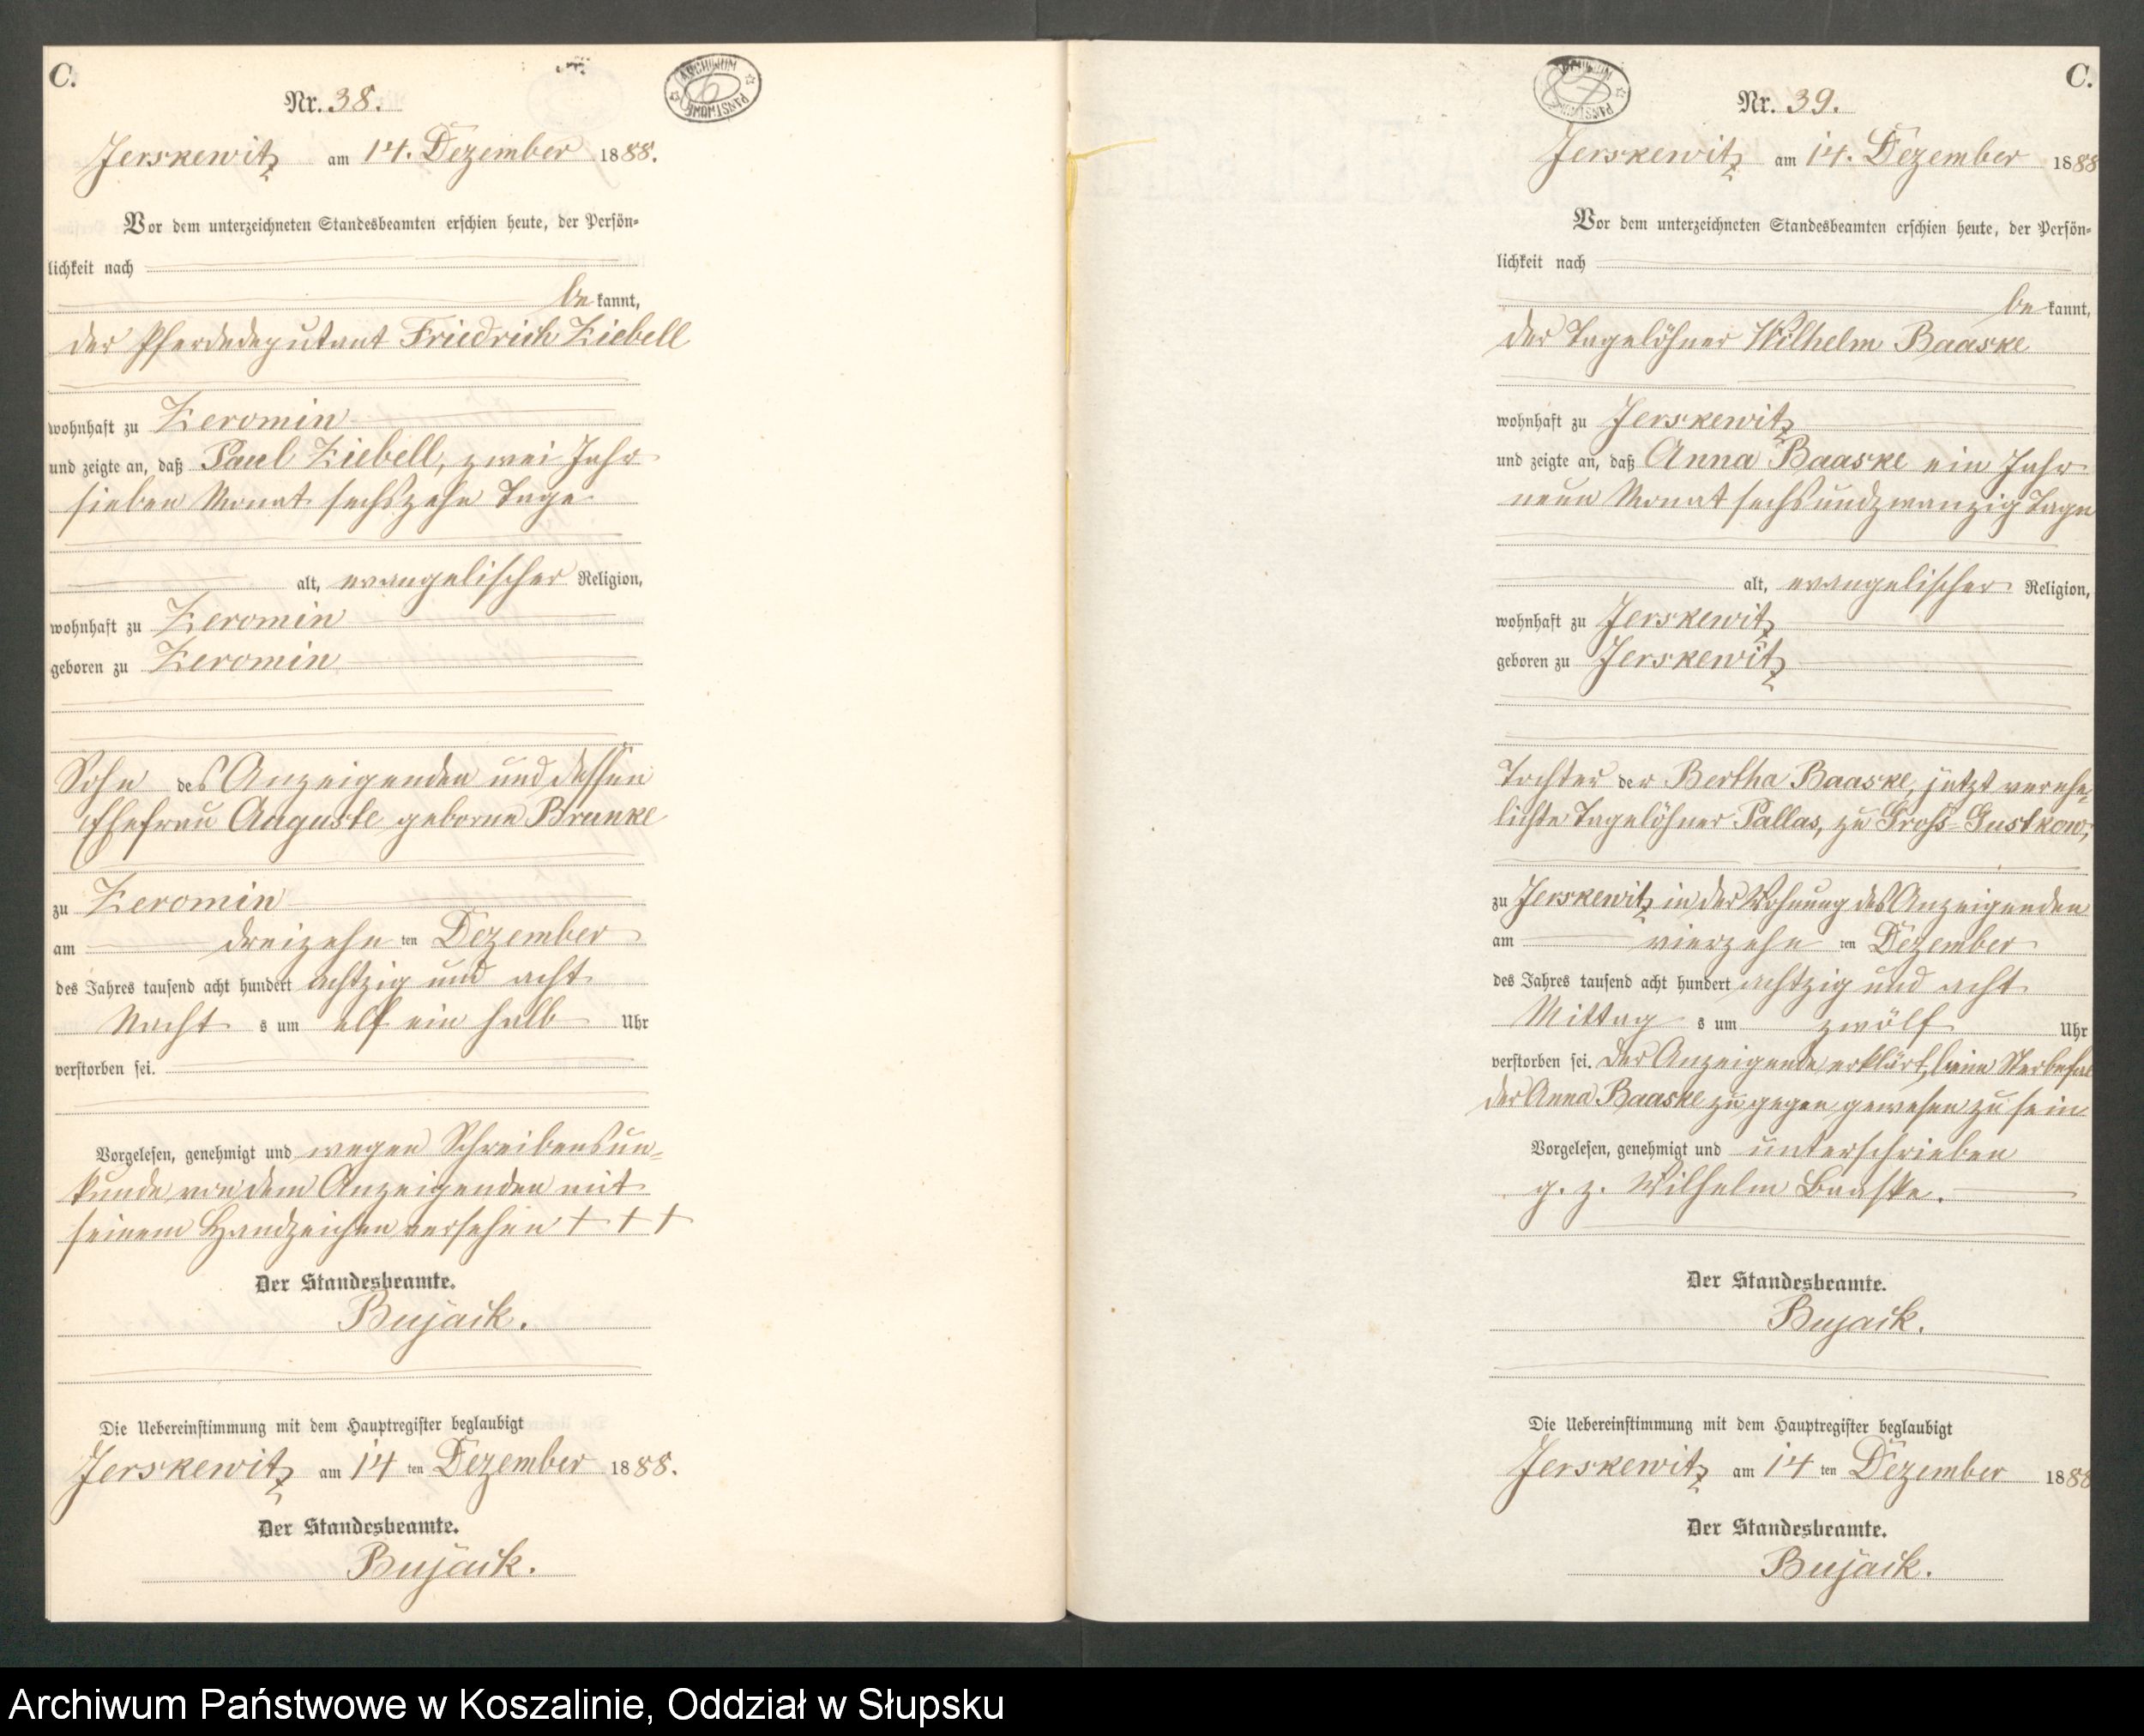 C.
Nr. 38.
ARCHIWUM PAŃSTWOWE
Jerskewitz am 14. Dezember 1888.
Vor dem unterzeichneten Standesbeamten erschien heute, der Persön-
lichkeit nach
be kannt,
der Pferdedeputant Friedrich Ziebell
wohnhaft zu Zeromin
und zeigte an, daß Paul Ziebell, zwei Jahr
sieben Monat sechszehn Tage
alt, evangelischer Religion,
wohnhaft zu Zeromin
geboren zu Zeromin
Sohn des Anzeigenden und dessen
Ehefrau Auguste geborne Brunke
zu Zeromin
am dreizehn ten Dezember
des Jahres tausend acht hundert achtzig und acht
Nacht s um elf ein halb Uhr
verstorben sei.
Vorgelesen, genehmigt und wegen Schreibensun-
kunde von dem Anzeigenden mit
seinem Handzeichen versehen + + +
Der Standesbeamte.
Bujack.
Die Uebereinstimmung mit dem Hauptregister beglaubigt
Jerskewitz am 14 ten Dezember 1888.
Der Standesbeamte.
Bujack.
C.
Nr. 39.
ARCHIWUM PAŃSTWOWE
Jerskewitz am 14. Dezember 1888
Vor dem unterzeichneten Standesbeamten erschien heute, der Persön-
lichkeit nach
be kannt,
der Tagelöhner Wilhelm Baaske
wohnhaft zu Jerskewitz
und zeigte an, daß Anna Baaske ein Jahr
neun Monat sechsundzwanzig Tage
alt, evangelischer Religion,
wohnhaft zu Jerskewitz
geboren zu Jerskewitz
Tochter der Bertha Baaske, jetzt verehe-
lichte Tagelöhner Pallas, zu Groß-Gustkow,
zu Jerskewitz in der Wohnung des Anzeigenden
am vierzehn ten Dezember
des Jahres tausend acht hundert achtzig und acht
Mittag s um zwölf Uhr
verstorben sei. Der Anzeigende erklärt, beim Sterbefal
der Anna Baaske zugegen gewesen zu sein
Vorgelesen, genehmigt und unterschrieben
g. z. Wilhelm Baaske.
Der Standesbeamte.
Bujack.
Die Uebereinstimmung mit dem Hauptregister beglaubigt
Jerskewitz am 14 ten Dezember 1888
Der Standesbeamte.
Bujack.
Archiwum Państwowe w Koszalinie, Oddział w Słupsku